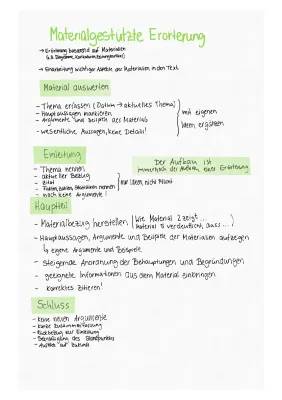 Materialgestützte Erörterung
→ Erörterung basierend auf Materialien
(z.B. Diagramme, Karikaturen, Zeitungsartikel)
→ Einarbeitung wichtiger Aspekte der Materialien in den Text
Material auswerten
- Thema erfassen (Datum → aktuelles Thema)
- Hauptaussagen markieren
- Argumente und Beispiele des Materials
- wesentliche Aussagen, keine Details!
mit eigenen
Ideen ergänzen
Einleitung
- Thema nennen
- aktueller Bezug
- Zitat
- Fakten, Zahlen,
- noch keine Argumente!
Der Aufbau ist
immernoch der Aufbau einer Erörterung
Hauptteil
- Materialbezug herstellen
Wie Material 2 zeigt...
Material 5 verdeutlicht, dass...
- Hauptaussagen, Argumente und Beispiele der Materialien aufzeigen
↳ eigene Argumente und Beispiele
- steigernde Anordnung der Behauptungen und Begründungen
- geeignete Informationen aus dem Material einbringen
- korrektes Zitieren!
Schluss
- keine neuen Argumente
- kurze Zusammenfassung
- Rückbezug zur Einleitung
- Bekräftigung des Standpunktes
- Ausblick auf Zukunft